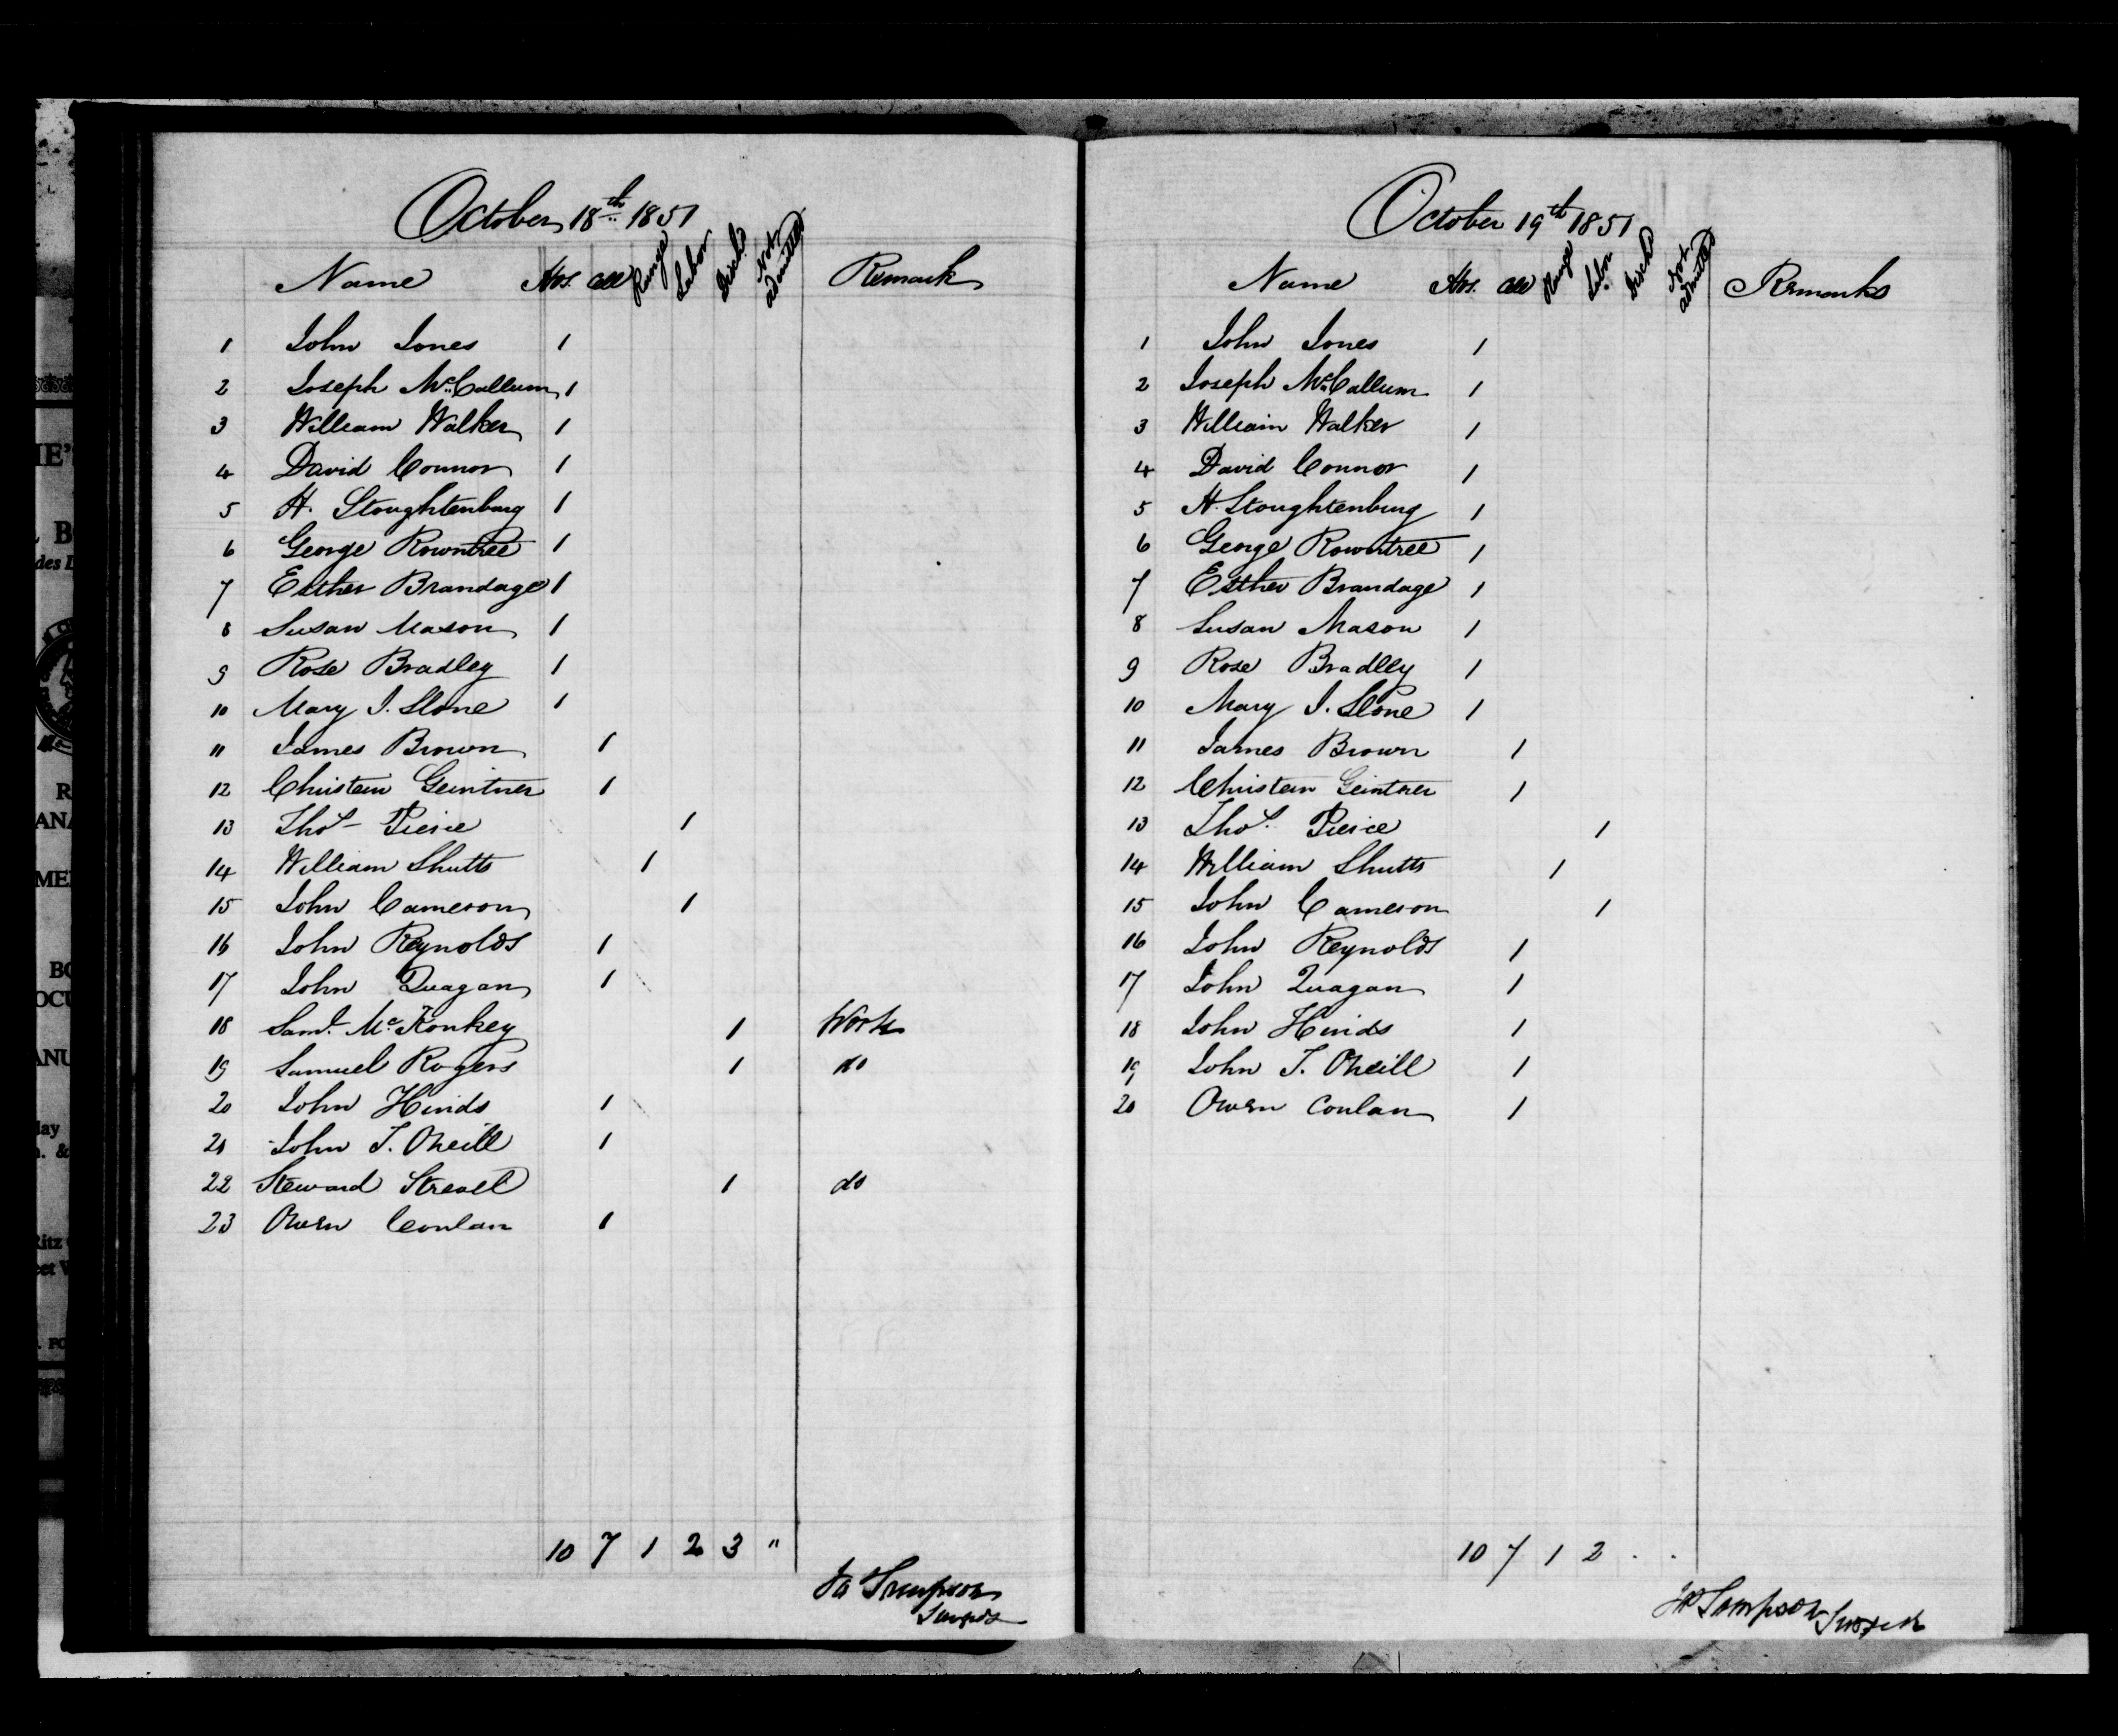 October 18th 1851
Name Hos. Cell Range Labor Disch. Not admitted Remark
1 John Jones 1
2 Joseph McCallum 1
3 William Walker 1
4 David Connor 1
5 H. Stoughtenburg 1
6 George Rowntree 1
7 Esther Brandage 1
8 Susan Mason 1
9 Rose Bradley 1
10 Mary J. Slone 1
11 James Brown 1
12 Christein Geintner 1
13 Thos. Pierce 1
14 William Shutts 1
15 John Cameron 1
16 John Reynolds 1
17 John Quagan 1
18 Saml. McKonkey 1 Work
19 Samuel Rogers 1 do
20 John Hinds 1
21 John T. Oneill 1
22 Steward Streall 1 do
23 Owen Conlan 1
10 7 1 2 3 "
October 19th 1851
Name Hos. Cell Range Labor Disch Not admitted Remarks
1 John Jones 1
2 Joseph McCallum 1
3 William Walker 1
4 David Connor 1
5 H. Stoughtenburg 1
6 George Rowntree 1
7 Esther Brandage 1
8 Susan Mason 1
9 Rose Bradley 1
10 Mary J. Slone 1
11 James Brown 1
12 Christein Geintner 1
13 Thos. Pierce 1
14 William Shutts 1
15 John Cameron 1
16 John Reynolds 1
17 John Quagan 1
18 John Hinds 1
19 John T. Oneill 1
20 Owen Conlan 1
10 7 1 2 . .